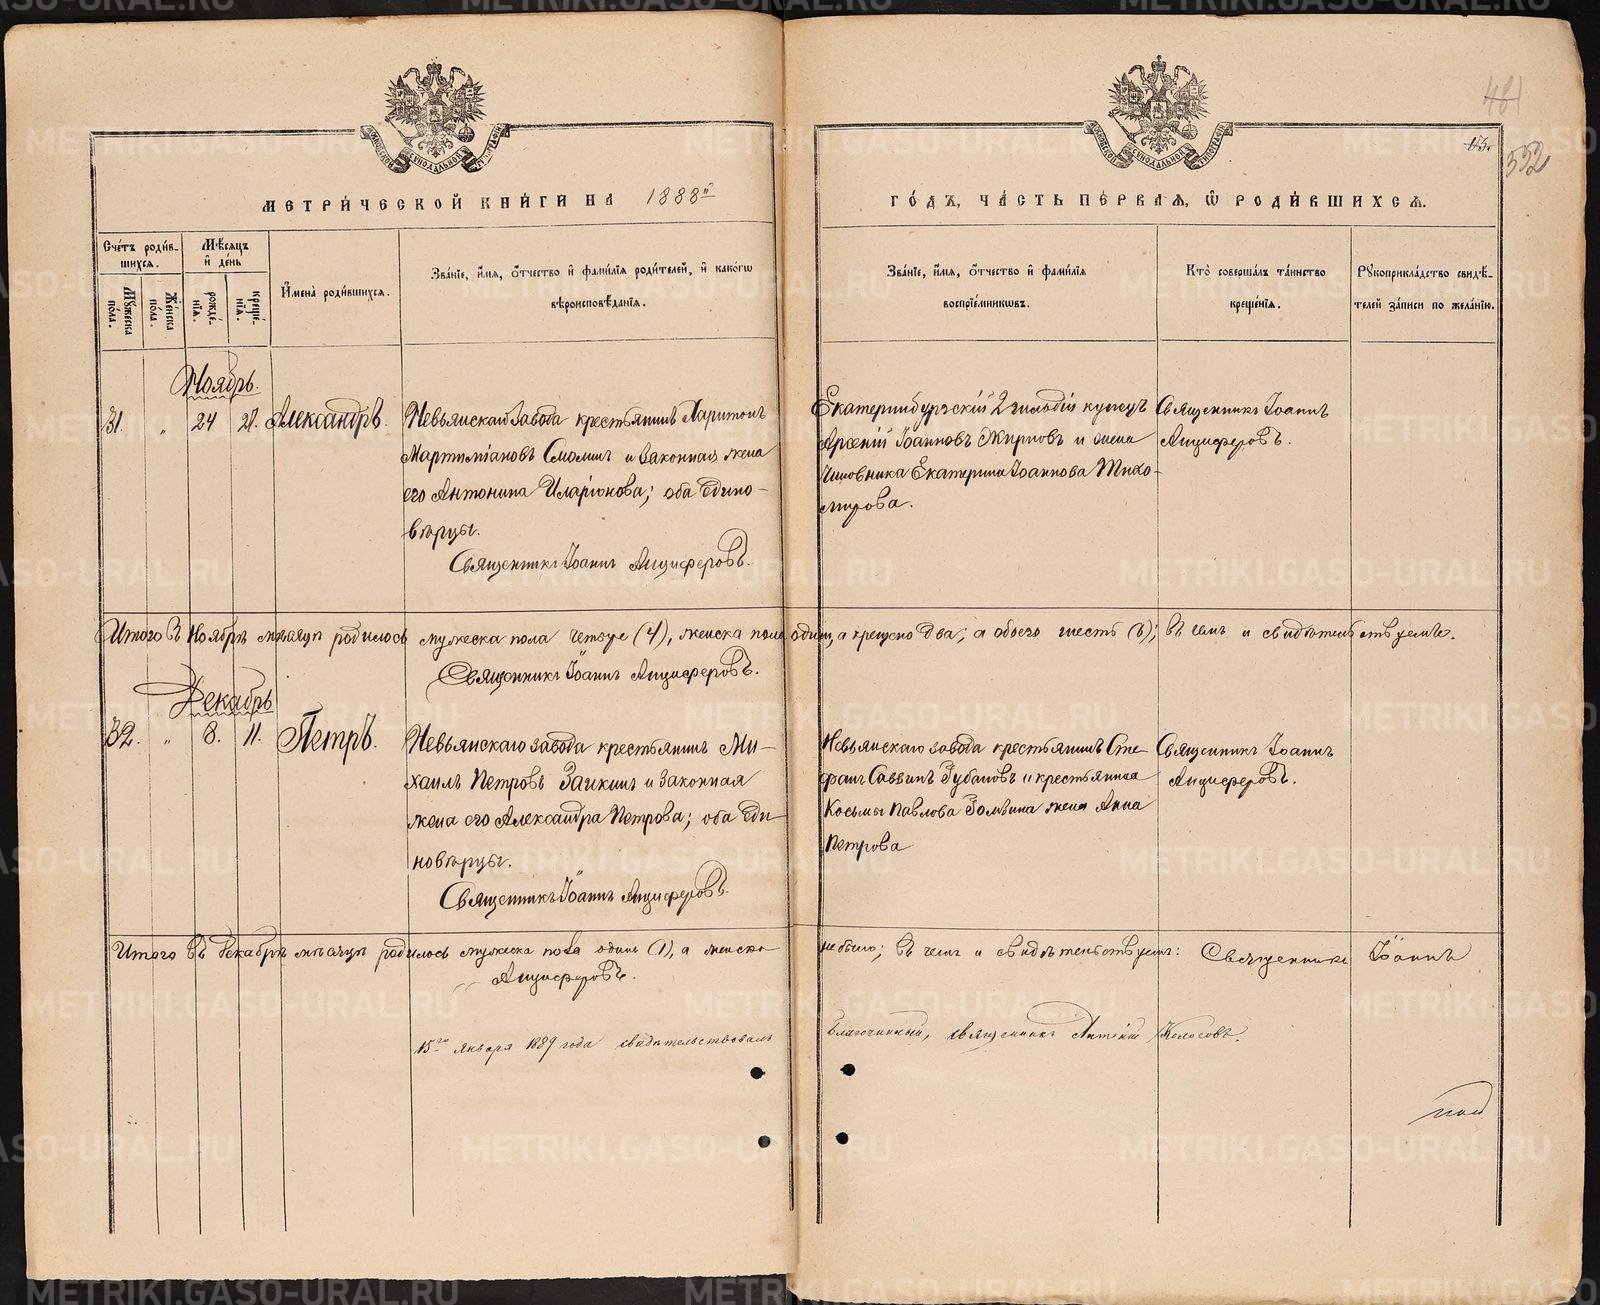 481
13.
552
МЕТРИ́ЧЕСКОЙ КНИ́ГИ НА 1888й
ГО́ДЪ, ЧА́СТЬ ПЕ́РВАЯ, Ѽ РОДИ́ВШИХСѦ.
Сче́тъ роди́вшихся.
Му́жеска по́ла.
Же́нска по́ла.
Мѣ́сяцъ и҆ де́нь
рожде́нїя.
креще́нїя.
И҆мена̀ роди́вшихся.
Зва́нїе, и҆́мя, ѻ҆́тчество и҆ фами́лїя роди́телей, и҆ како́гѡ
вѣроисповѣ́данїя.
Зва́нїе, и҆́мя, ѻ҆́тчество и҆ фами́лїя
воспрїе́мниковъ.
Кто̀ соверша́лъ та́инство
креще́нїя.
Рукоприкла́дство свидѣ́-
телей за́писи по жела́нїю.
Ноябрь.
31. „ 24 27. Александръ.
Невьянскаго завода крестьянинъ Харитонъ
Мартиміановъ Смолин и законная жена
его Антонина Иларіонова; оба едино-
вѣрцы.
Священникъ Іоаннъ Анциферовъ.
Екатеринбургскій 2 гильдіи купецъ
Арсеній Іоанновъ Жирновъ и жена
чиновника Екатерина Іоаннова Тихо-
мирова.
Священникъ Іоаннъ
Анциферовъ.
Итого въ Ноябрѣ мѣсяцѣ родилось мужеска пола четыре (4), женска пола одинъ, а крещено два; а обоего шесть (6); въ чемъ и свидѣтельствуемъ.
Священникъ Іоаннъ Анциферовъ.
Декабрь
32. „ 8. 11. Петръ.
Невьянскаго завода крестьянинъ Ми-
хаилъ Петровъ Заикинъ и законная
жена его Александра Петрова; оба еди-
новѣрцы.
Священникъ Іоаннъ Анциферовъ.
Невьянскаго завода крестьянинъ Сте-
фанъ Саввинъ Губановъ и крестьянина
Косьмы Павлова жена Анна
Петрова
Священникъ Іоаннъ
Анциферовъ.
Итого въ Декабрѣ мѣсяцѣ родилось мужеска пола одинъ (1), а женска не было; въ чемъ и свидѣтельствуемъ: Священникъ Іоаннъ
Анциферовъ.
15го января 1889 года свидѣтельствовалъ благочинный, священникъ Антоній Колосовъ.